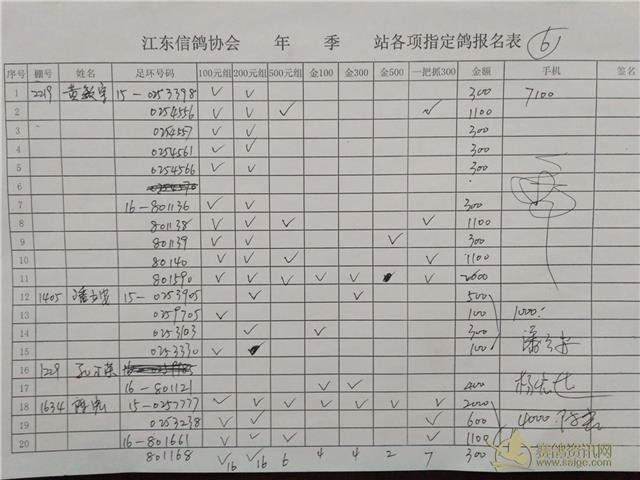 江东信鸽协会 年 季 站各项指定鸽报名表 6
序号 棚号 姓名 足环号码 100元组 200元组 500元组 金100 金300 金500 一把抓300 金额 手机 签名
1 2219 15-0253398 ✓ ✓ 300 7100
2 0254556 ✓ ✓ ✓ ✓ 1100
3 0254557 ✓ ✓ 300
4 0254561 ✓ ✓ 300
5 0254566 ✓ ✓ 300
6
7 16-801136 ✓ ✓ 300
8 801138 ✓ ✓ ✓ ✓ 1100
9 801139 ✓ ✓ ✓ 300
10 80140 ✓ ✓ ✓ ✓ 1100
11 801590 ✓ ✓ ✓ ✓ ✓ ✓ 2600
12 1405 15-0253905 ✓ ✓ 500
13 0259705 ✓ 100 1000
14 0253103 ✓ ✓ 300
15 0253330 ✓ 100
16 1229
17 16-801121 ✓ ✓ 400
18 1634 15-0257777 ✓ ✓ ✓ ✓ ✓ ✓ ✓ 2000
19 0253238 ✓ ✓ ✓ 600 4000
20 16-801661 ✓ ✓ ✓ ✓ 1100
801168 ✓ 16 ✓ 16 6 4 4 2 7 300
赛鸽资讯网
www.saige.com